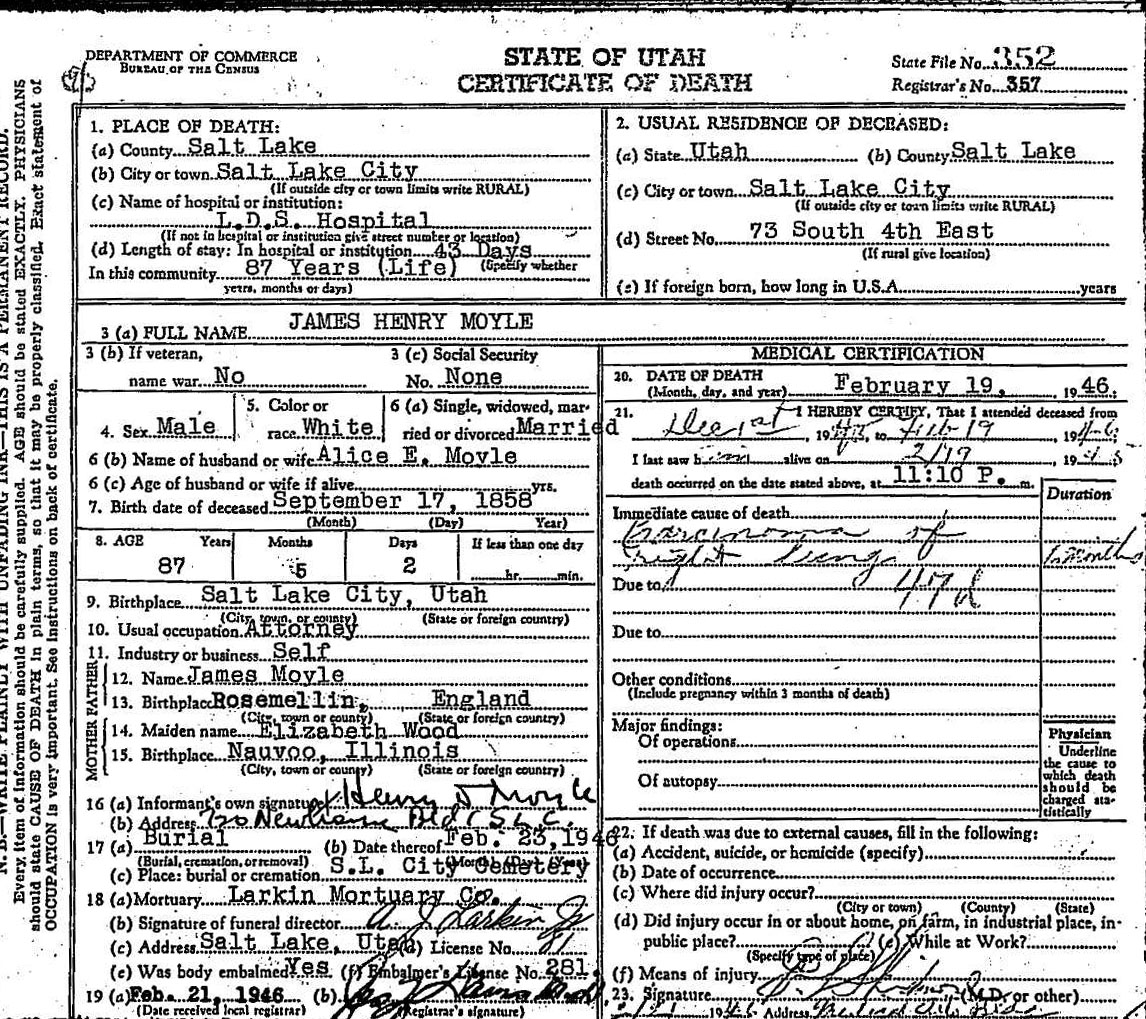 DEPARTMENT OF COMMERCE
BUREAU OF THE CENSUS
STATE OF UTAH
CERTIFICATE OF DEATH
State File No. 352
Registrar's No. 357
N. B.—WRITE PLAINLY WITH UNFADING INK—THIS IS A PERMANENT RECORD.
Every item of information should be carefully supplied. AGE should be stated EXACTLY. PHYSICIANS
should state CAUSE OF DEATH in plain terms, so that it may be properly classified. Exact statement of
OCCUPATION is very important. See instructions on back of certificate.
1. PLACE OF DEATH:
(a) County Salt Lake
(b) City or town Salt Lake City
(If outside city or town limits write RURAL)
(c) Name of hospital or institution:
L.D.S. Hospital
(If not in hospital or institution give street number or location)
(d) Length of stay: In hospital or institution 43 Days
(Specify whether
In this community 87 Years (Life)
years, months or days)
2. USUAL RESIDENCE OF DECEASED:
(a) State Utah (b) County Salt Lake
(c) City or town Salt Lake City
(If outside city or town limits write RURAL)
(d) Street No. 73 South 4th East
(If rural give location)
(e) If foreign born, how long in U.S.A. years
3 (a) FULL NAME JAMES HENRY MOYLE
3 (b) If veteran, 3 (c) Social Security
name war No No. None
4. Sex Male
5. Color or
race White
6 (a) Single, widowed, mar-
ried or divorced Married
6 (b) Name of husband or wife Alice E. Moyle
6 (c) Age of husband or wife if alive yrs.
7. Birth date of deceased September 17, 1858
(Month) (Day) Year)
8. AGE Years Months Days If less than one day
87 5 2 hr. min.
9. Birthplace Salt Lake City, Utah
(City, town, or county) (State or foreign country)
10. Usual occupation Attorney
11. Industry or business Self
FATHER
12. Name James Moyle
13. Birthplace Rosemellin, England
(City, town or county) (State or foreign country)
MOTHER
14. Maiden name Elizabeth Wood
15. Birthplace Nauvoo, Illinois
(City, town or county) (State or foreign country)
16 (a) Informant's own signature Henry D Moyle
(b) Address Bld S L C.
17 (a) Burial (b) Date thereof Feb. 23, 1946
(Burial, cremation, or removal) (Month) (Day) (Year)
(c) Place: burial or cremation S.L. City Cemetery
18 (a) Mortuary Larkin Mortuary Co.
(b) Signature of funeral director A. J Larkin Jr
(c) Address Salt Lake, Utah (d) License No. 81
(e) Was body embalmed Yes (f) Embalmer's License No. 281.
19 (a) Feb. 21, 1946 (b)
(Date received local registrar) (Registrar's signature)
MEDICAL CERTIFICATION
20. DATE OF DEATH
(Month, day, and year) February 19, 1946.
21. I HEREBY CERTIFY, That I attended deceased from
Dec 1st, 1945, to Feb 19, 1946
I last saw him alive on 2/19, 194
death occurred on the date stated above, at 11:10 P. m.
Duration
Immediate cause of death
Carcinoma of
right lung months
Due to 47d
Due to
Other conditions
(Include pregnancy within 3 months of death)
Major findings:
Of operations
Of autopsy
Physician
Underline
the cause to
which death
should be
charged sta-
tistically
22. If death was due to external causes, fill in the following:
(a) Accident, suicide, or homicide (specify)
(b) Date of occurrence
(c) Where did injury occur?
(City or town) (County) (State)
(d) Did injury occur in or about home, on farm, in industrial place, in
public place? (e) While at Work?
(Specify type of place)
(f) Means of injury
23. Signature (M.D. or other)
1946 Address